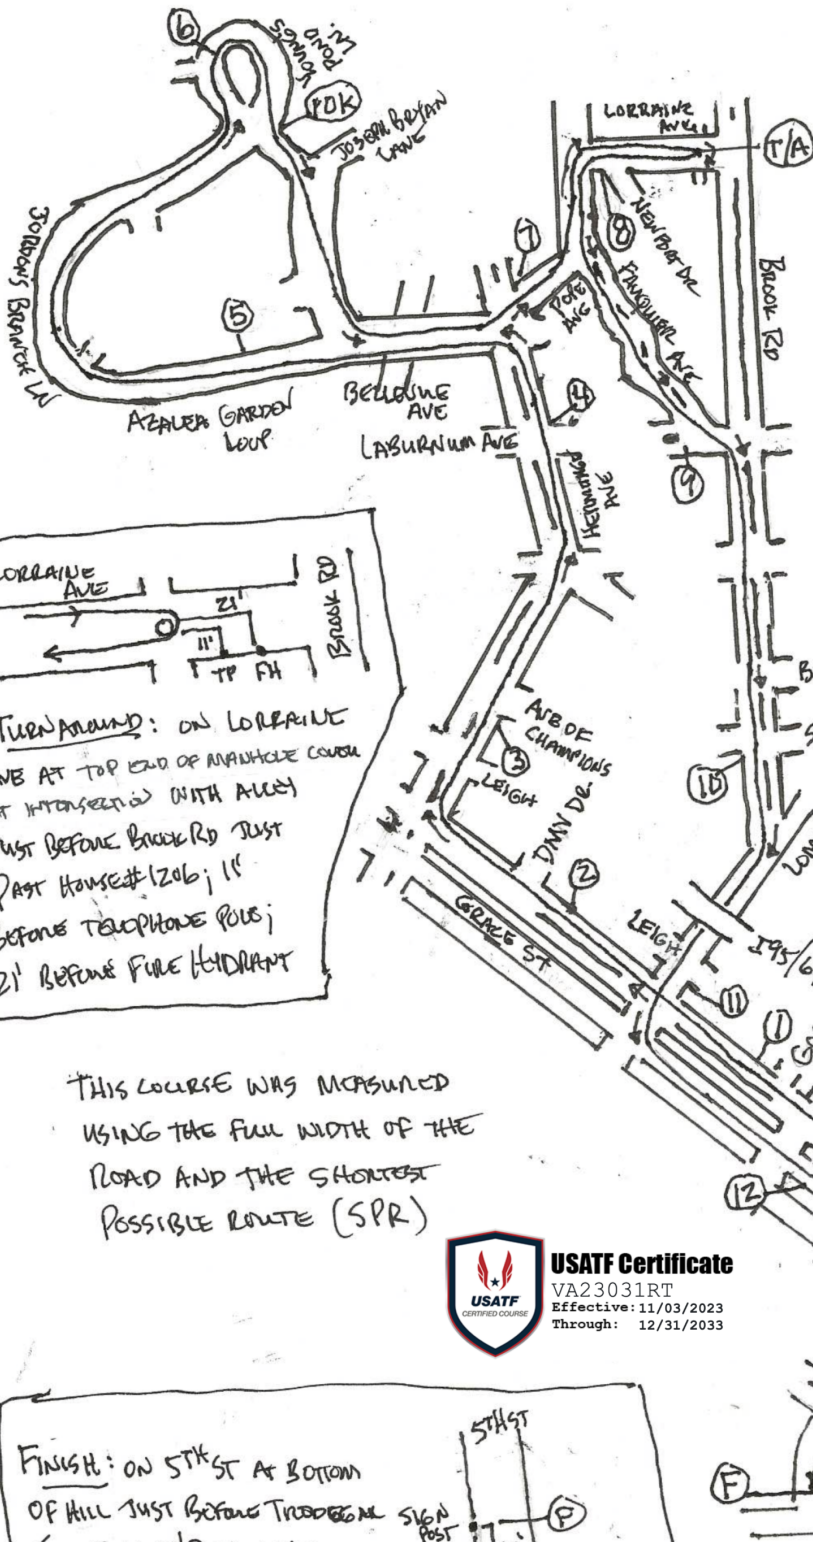 6
YOUNGS
POND
LN
10K
JOSEPH BRYAN
LANE
LORRAINE
AVE
T/A
JORDONS BRANCH LN
7
8
NEWPORT DR
BROOK RD
POPE
AVE
FAUQUIER AVE
5
AZALEA GARDEN
LOOP
BELLEVUE
AVE
LABURNUM AVE
4
HERMITAGE
AVE
9
LORRAINE
AVE
21'
11'
TP FH
BROOK RD
TURNAROUND: ON LORRAINE
AVE AT TOP END OF MANHOLE COVER
AT INTERSECTION WITH ALLEY
JUST BEFORE BROOK RD JUST
PAST HOUSE #1206; 11'
BEFORE TELEPHONE POLE;
21' BEFORE FIRE HYDRANT
AVE OF
CHAMPIONS
3
LEIGH
DMV DR.
2
10
GRACE ST
LEIGH
I95/6
11
1
12
THIS COURSE WAS MEASURED
USING THE FULL WIDTH OF THE
ROAD AND THE SHORTEST
POSSIBLE ROUTE (SPR)
USATF
CERTIFIED COURSE
USATF Certificate
VA23031RT
Effective: 11/03/2023
Through: 12/31/2033
FINISH: ON 5TH ST AT BOTTOM
OF HILL JUST BEFORE TREDEGAR
5TH ST
SIGN
POST
F
F